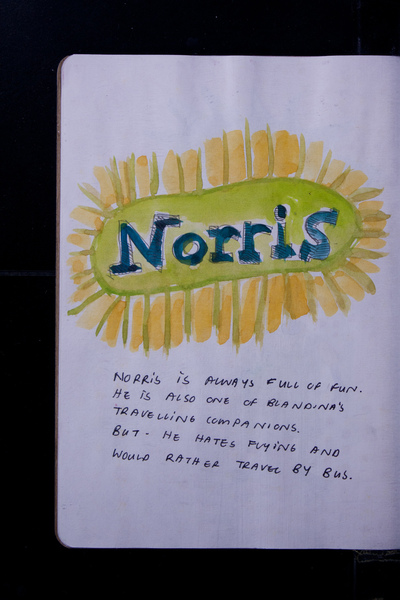 Norris
NORRIS IS ALWAYS FULL OF FUN.
HE IS ALSO ONE OF BLANDINA'S
TRAVELLING COMPANIONS.
BUT - HE HATES FLYING AND
WOULD RATHER TRAVEL BY BUS.